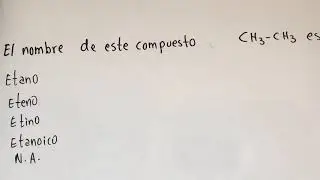 El nombre de este compuesto CH₃-CH₃ es
Etano
Eteno
Etino
Etanoico
N.A.